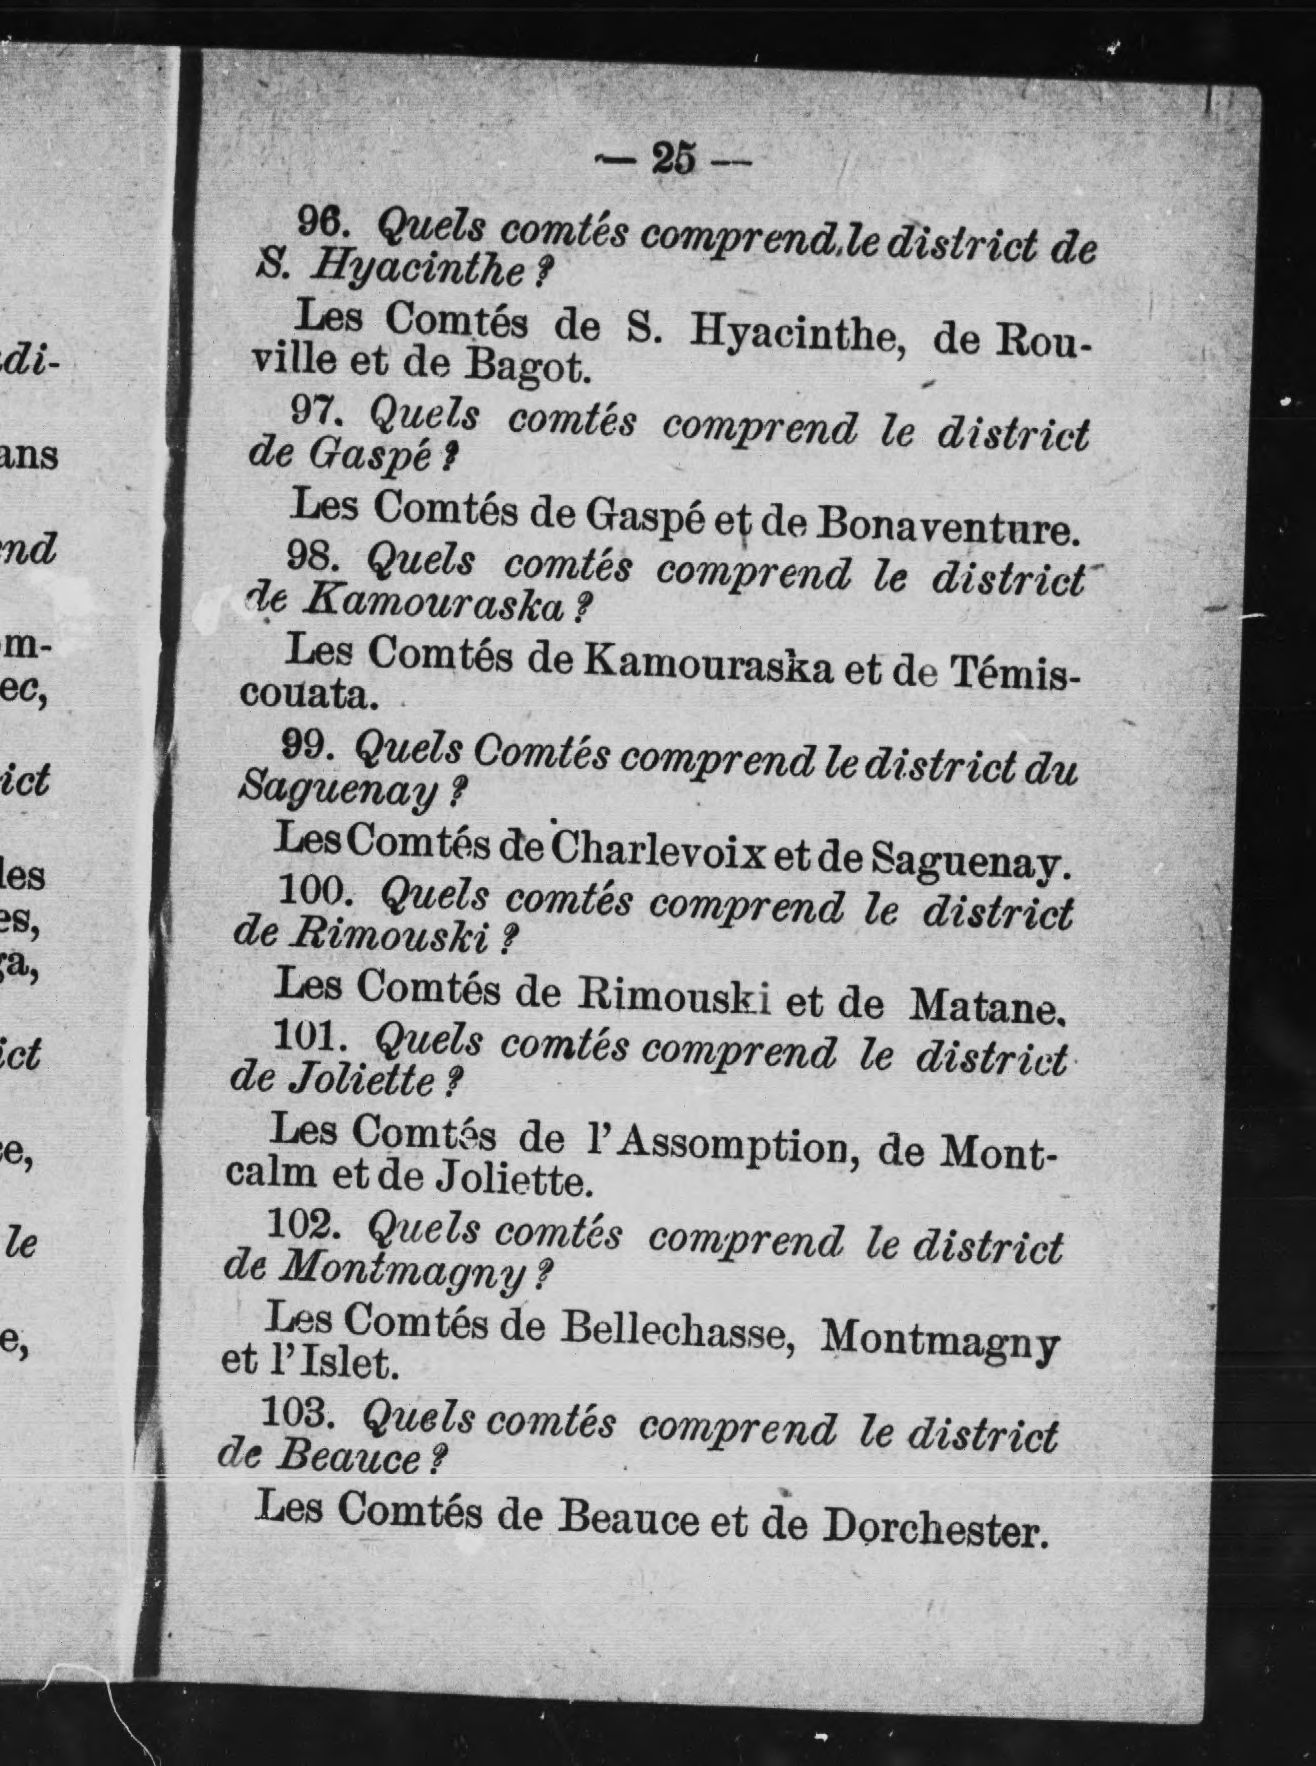 — 25 —
96. Quels comtés comprend le district de
S. Hyacinthe ?
Les Comtés de S. Hyacinthe, de Rou-
ville et de Bagot.
97. Quels comtés comprend le district
de Gaspé ?
Les Comtés de Gaspé et de Bonaventure.
98. Quels comtés comprend le district
de Kamouraska ?
Les Comtés de Kamouraska et de Témis-
couata.
99. Quels Comtés comprend le district du
Saguenay ?
Les Comtés de Charlevoix et de Saguenay.
100. Quels comtés comprend le district
de Rimouski ?
Les Comtés de Rimouski et de Matane.
101. Quels comtés comprend le district
de Joliette ?
Les Comtés de l'Assomption, de Mont-
calm et de Joliette.
102. Quels comtés comprend le district
de Montmagny ?
Les Comtés de Bellechasse, Montmagny
et l'Islet.
103. Quels comtés comprend le district
de Beauce ?
Les Comtés de Beauce et de Dorchester.